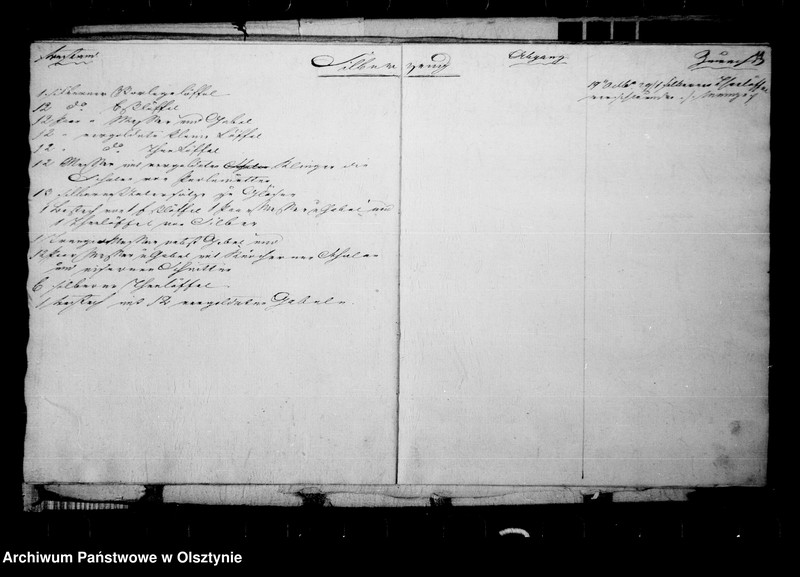 Bestand
Silberzeug
Abgang
Zuwachs
1 silberner Vorlegelöffel
12 do Eßlöffel
12 Paar Messer und Gabel
12 vergoldete kleine Löffel
12 do Theelöffel
12 Messer mit vergoldeten Klingen die
Schalen von Perlemutter
13 silberne Untersätze zu Gläser
1 Besteck mit 1 Eßlöffel 1 Paar Messer u Gabel und
1 Theelöffel von Silber
1 Messer nebst Gabel und
12 Paar Messer u Gabel mit Schalen
und
6 silberne Theelöffel
1 Besteck mit 12 vergoldeten Gabeln.
silberne Theelöffel
Archiwum Państwowe w Olsztynie